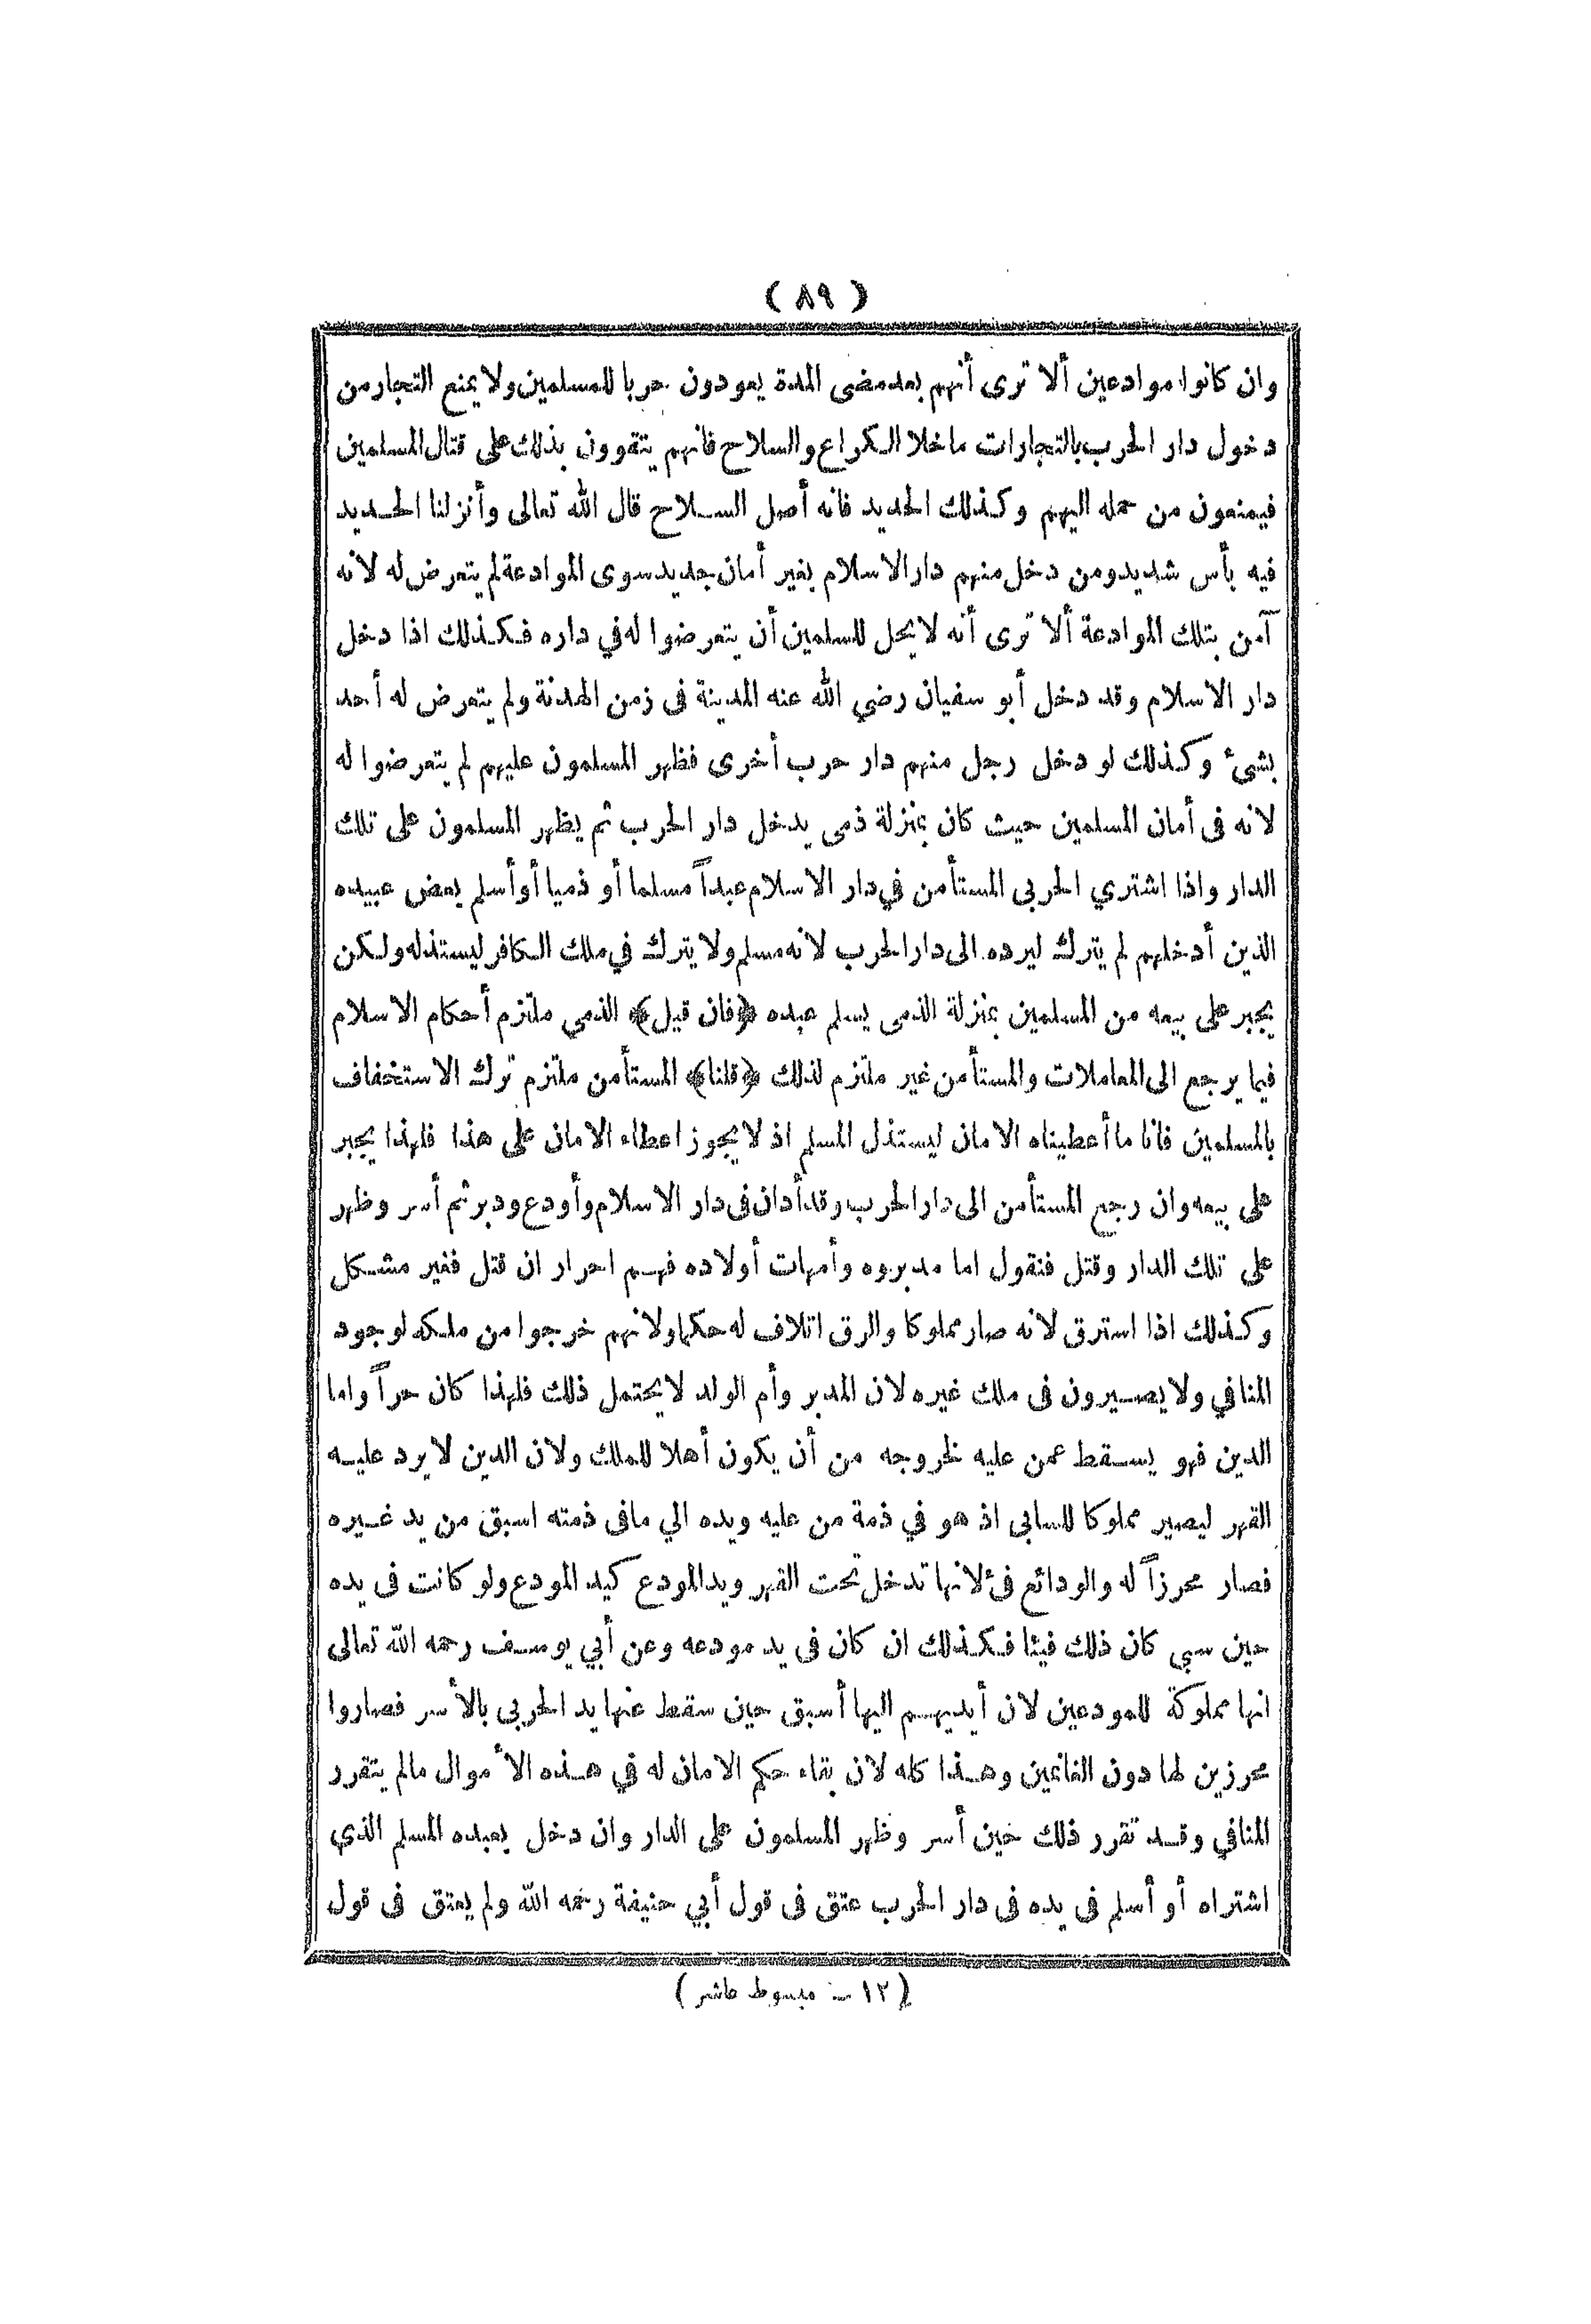 ( ٨٩ )
وان كانوا موادعين ألا ترى أنهم بعد مضى المدة يعودون حربا للمسلمين ولا يمنع التجار من
دخول دار الحرب بالتجارات ما خلا الكراع والسلاح فانهم يتقوون بذلك على قتال المسلمين
فيمنعون من حمله اليهم وكذلك الحديد فانه أصل السلاح قال الله تعالى وأنزلنا الحديد
فيه بأس شديد ومن دخل منهم دار الاسلام بغير أمان جديد سوى الموادعة لم يتعرض له لانه
آمن بتلك الموادعة ألا ترى أنه لا يحل للمسلمين أن يتعرضوا له في داره فكذلك اذا دخل
دار الاسلام وقد دخل أبو سفيان رضي الله عنه المدينة فى زمن الهدنة ولم يتعرض له أحد
بشئ وكذلك لو دخل رجل منهم دار حرب أخرى فظهر المسلمون عليهم لم يتعرضوا له
لانه فى أمان المسلمين حيث كان بمنزلة ذمى يدخل دار الحرب ثم يظهر المسلمون على تلك
الدار واذا اشتري الحربى المستأمن في دار الاسلام عبداً مسلما أو ذميا أو أسلم بعض عبيده
الذين أدخلهم لم يترك ليرده الى دار الحرب لانه مسلم ولا يترك في ملك الكافر ليستذله ولكن
يجبر على بيعه من المسلمين بمنزلة الذمى يسلم عبده ﴿فان قيل﴾ الذمي ملتزم أحكام الاسلام
فيما يرجع الى المعاملات والمستأمن غير ملتزم لذلك ﴿قلنا﴾ المستأمن ملتزم ترك الاستخفاف
بالمسلمين فانا ما أعطيناه الامان ليستذل المسلم اذ لا يجوز اعطاء الامان على هذا فلهذا يجبر
على بيعه وان رجع المستأمن الى دار الحرب وقد أدان فى دار الاسلام وأودع ودبر ثم أسر وظهر
على تلك الدار وقتل فنقول اما مدبروه وأمهات أولاده فهم احرار ان قتل فغير مشكل
وكذلك اذا استرق لانه صار مملوكا والرق اتلاف له حكما ولانهم خرجوا من ملكه لوجود
المنافي ولا يصيرون فى ملك غيره لان المدبر وأم الولد لا يحتمل ذلك فلهذا كان حراً واما
الدين فهو يسقط عمن عليه لخروجه من أن يكون أهلا للملك ولان الدين لا يرد عليه
القهر ليصير مملوكا للسابى اذ هو في ذمة من عليه ويده الي مافى ذمته اسبق من يد غيره
فصار محرزاً له والودائع فئ لانها تدخل تحت القهر ويد المودع كيد المودع ولو كانت فى يده
حين سبي كان ذلك فيئا فكذلك ان كان فى يد مودعه وعن أبي يوسف رحمه الله تعالى
انها مملوكة للمودعين لان أيديهم اليها أسبق حين سقط عنها يد الحربى بالأسر فصاروا
محرزين لها دون الغانمين وهذا كله لان بقاء حكم الامان له في هذه الأموال مالم يتقرر
المنافي وقد تقرر ذلك حين أسر وظهر المسلمون على الدار وان دخل بعبده المسلم الذي
اشتراه أو أسلم فى يده فى دار الحرب عتق فى قول أبي حنيفة رحمه الله ولم يعتق فى قول
(١٢ – مبسوط عاشر)